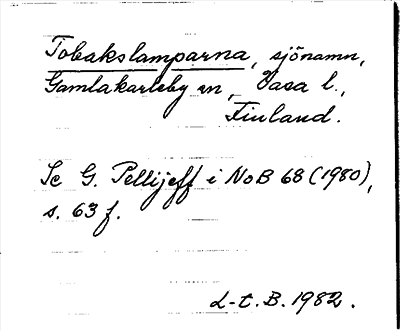 Tobakslamparna, sjönamn,
Gamlakarleby sn, Vasa l.,
Finland.
Se G. Pellijeff i NoB 68 (1980),
s. 63 f.
L-t. B. 1982.